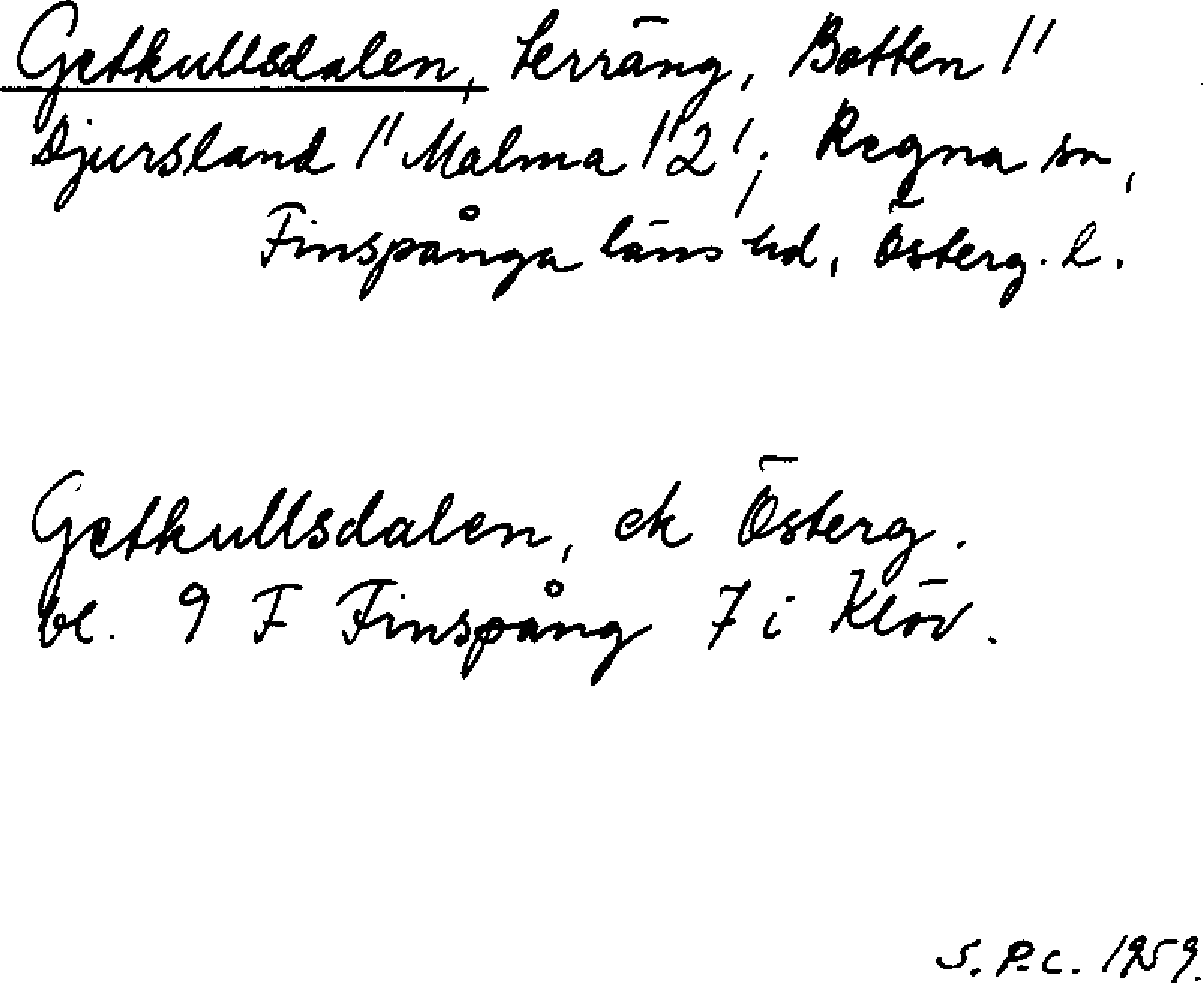 Getkullsdalen, terräng, Botten 1/1
Djursland 1/1 Malma 1/1 2/1; Regna sn,
Finspånga läns hd, Österg. l.
Getkullsdalen, ek Österg.
bl. 9 F Finspång 7 i Klöv.
S.P.C. 1959.